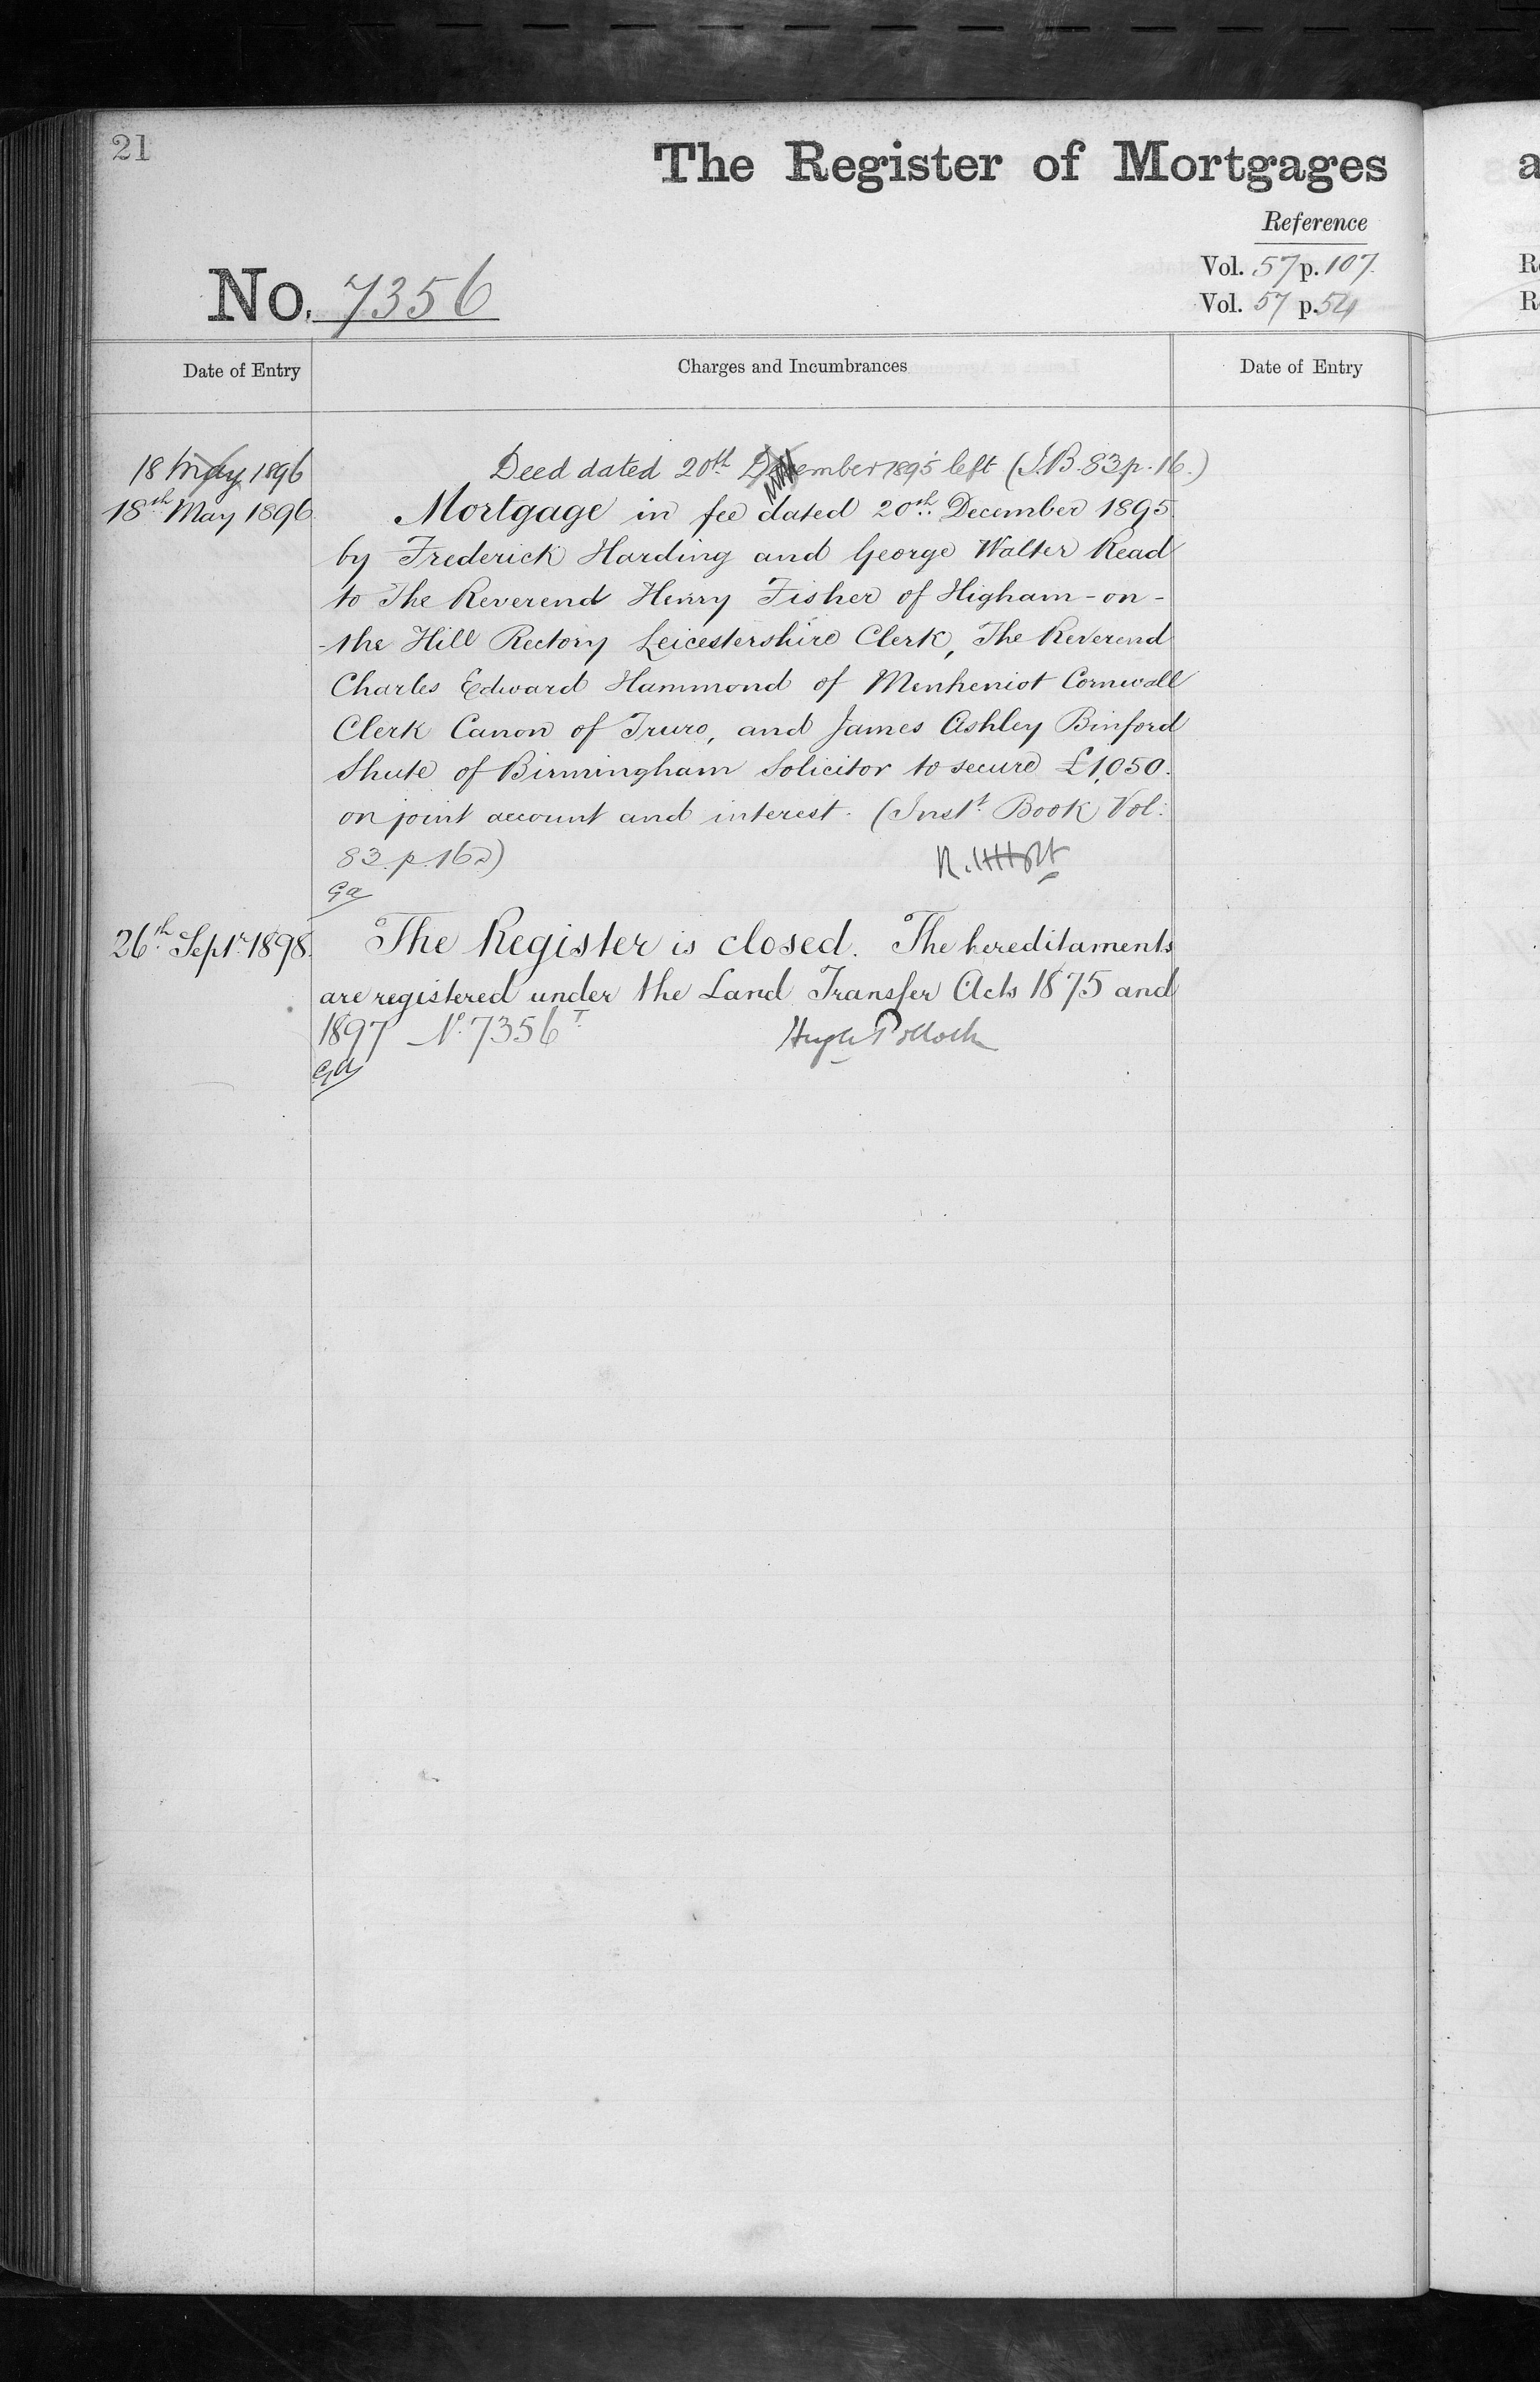 21
The Register of Mortgages
Reference
Vol. 57 p. 107.
No. 7356
Vol. 57 p. 54
Date of Entry
Charges and Incumbrances
Date of Entry
18 May 1896
Deed dated 20th December 1895 left (I.B. 83 p. 16.)
18th May 1896
Mortgage in fee dated 20th December 1895
by Frederick Harding and George Walter Read
to The Reverend Henry Fisher of Higham-on-
-the Hill Rectory Leicestershire Clerk, The Reverend
Charles Edward Hammond of Menheniot Cornwall
Clerk Canon of Truro, and James Ashley Binford
Shute of Birmingham Solicitor to secure £1,050.
on joint account and interest. (Inst. Book Vol:
83. p. 16)
R. H Holt
Ga
26th Sept. 1898.
The Register is closed. The hereditaments
are registered under the Land Transfer Acts 1875 and
1897 No. 7356 T.
Hugh Pollock
Ga
a
R
R